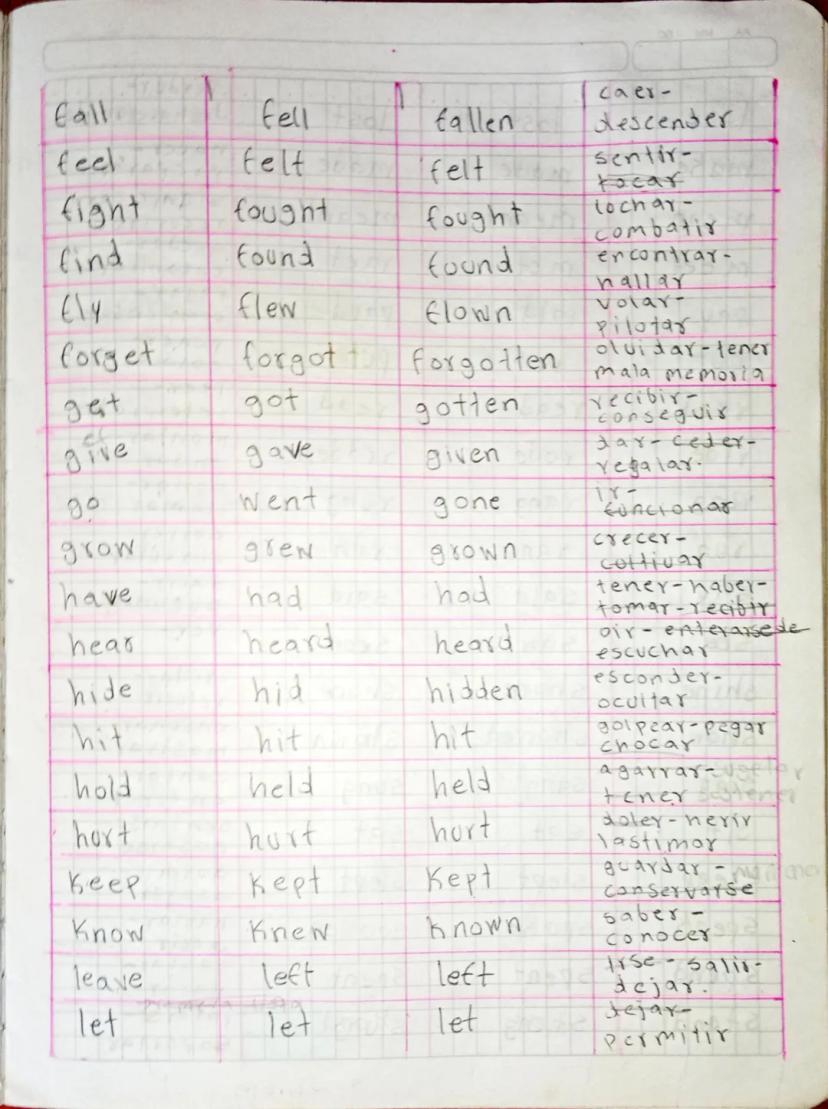 caer-
fall fell fallen descender
feel felt felt sentir-
tocar
fight fought fought lochar-
combatir
find found found encontrar-
hallar
fly flew flown volar-
pilotar
forget forgot forgotten olvidar-tener
mala memoria
get got gotten recibir-
conseguir
give gave given dar-ceder-
regalar.
go went gone ir-
funcionar
grow grew grown crecer-
coltivar
have had had tener-haber-
tomar-recibir
hear heard heard oir-enterarsede
escuchar
hide hid hidden esconder-
ocultar
hit hit hit golpear-pegar
chocar
hold held held agarrar-
tener
hurt hurt hurt doler-herir
lastimar
keep kept kept guardar-
conservarse
know knew known saber-
conocer
leave left left irse-salir-
dejar.
let let let dejar-
permitir